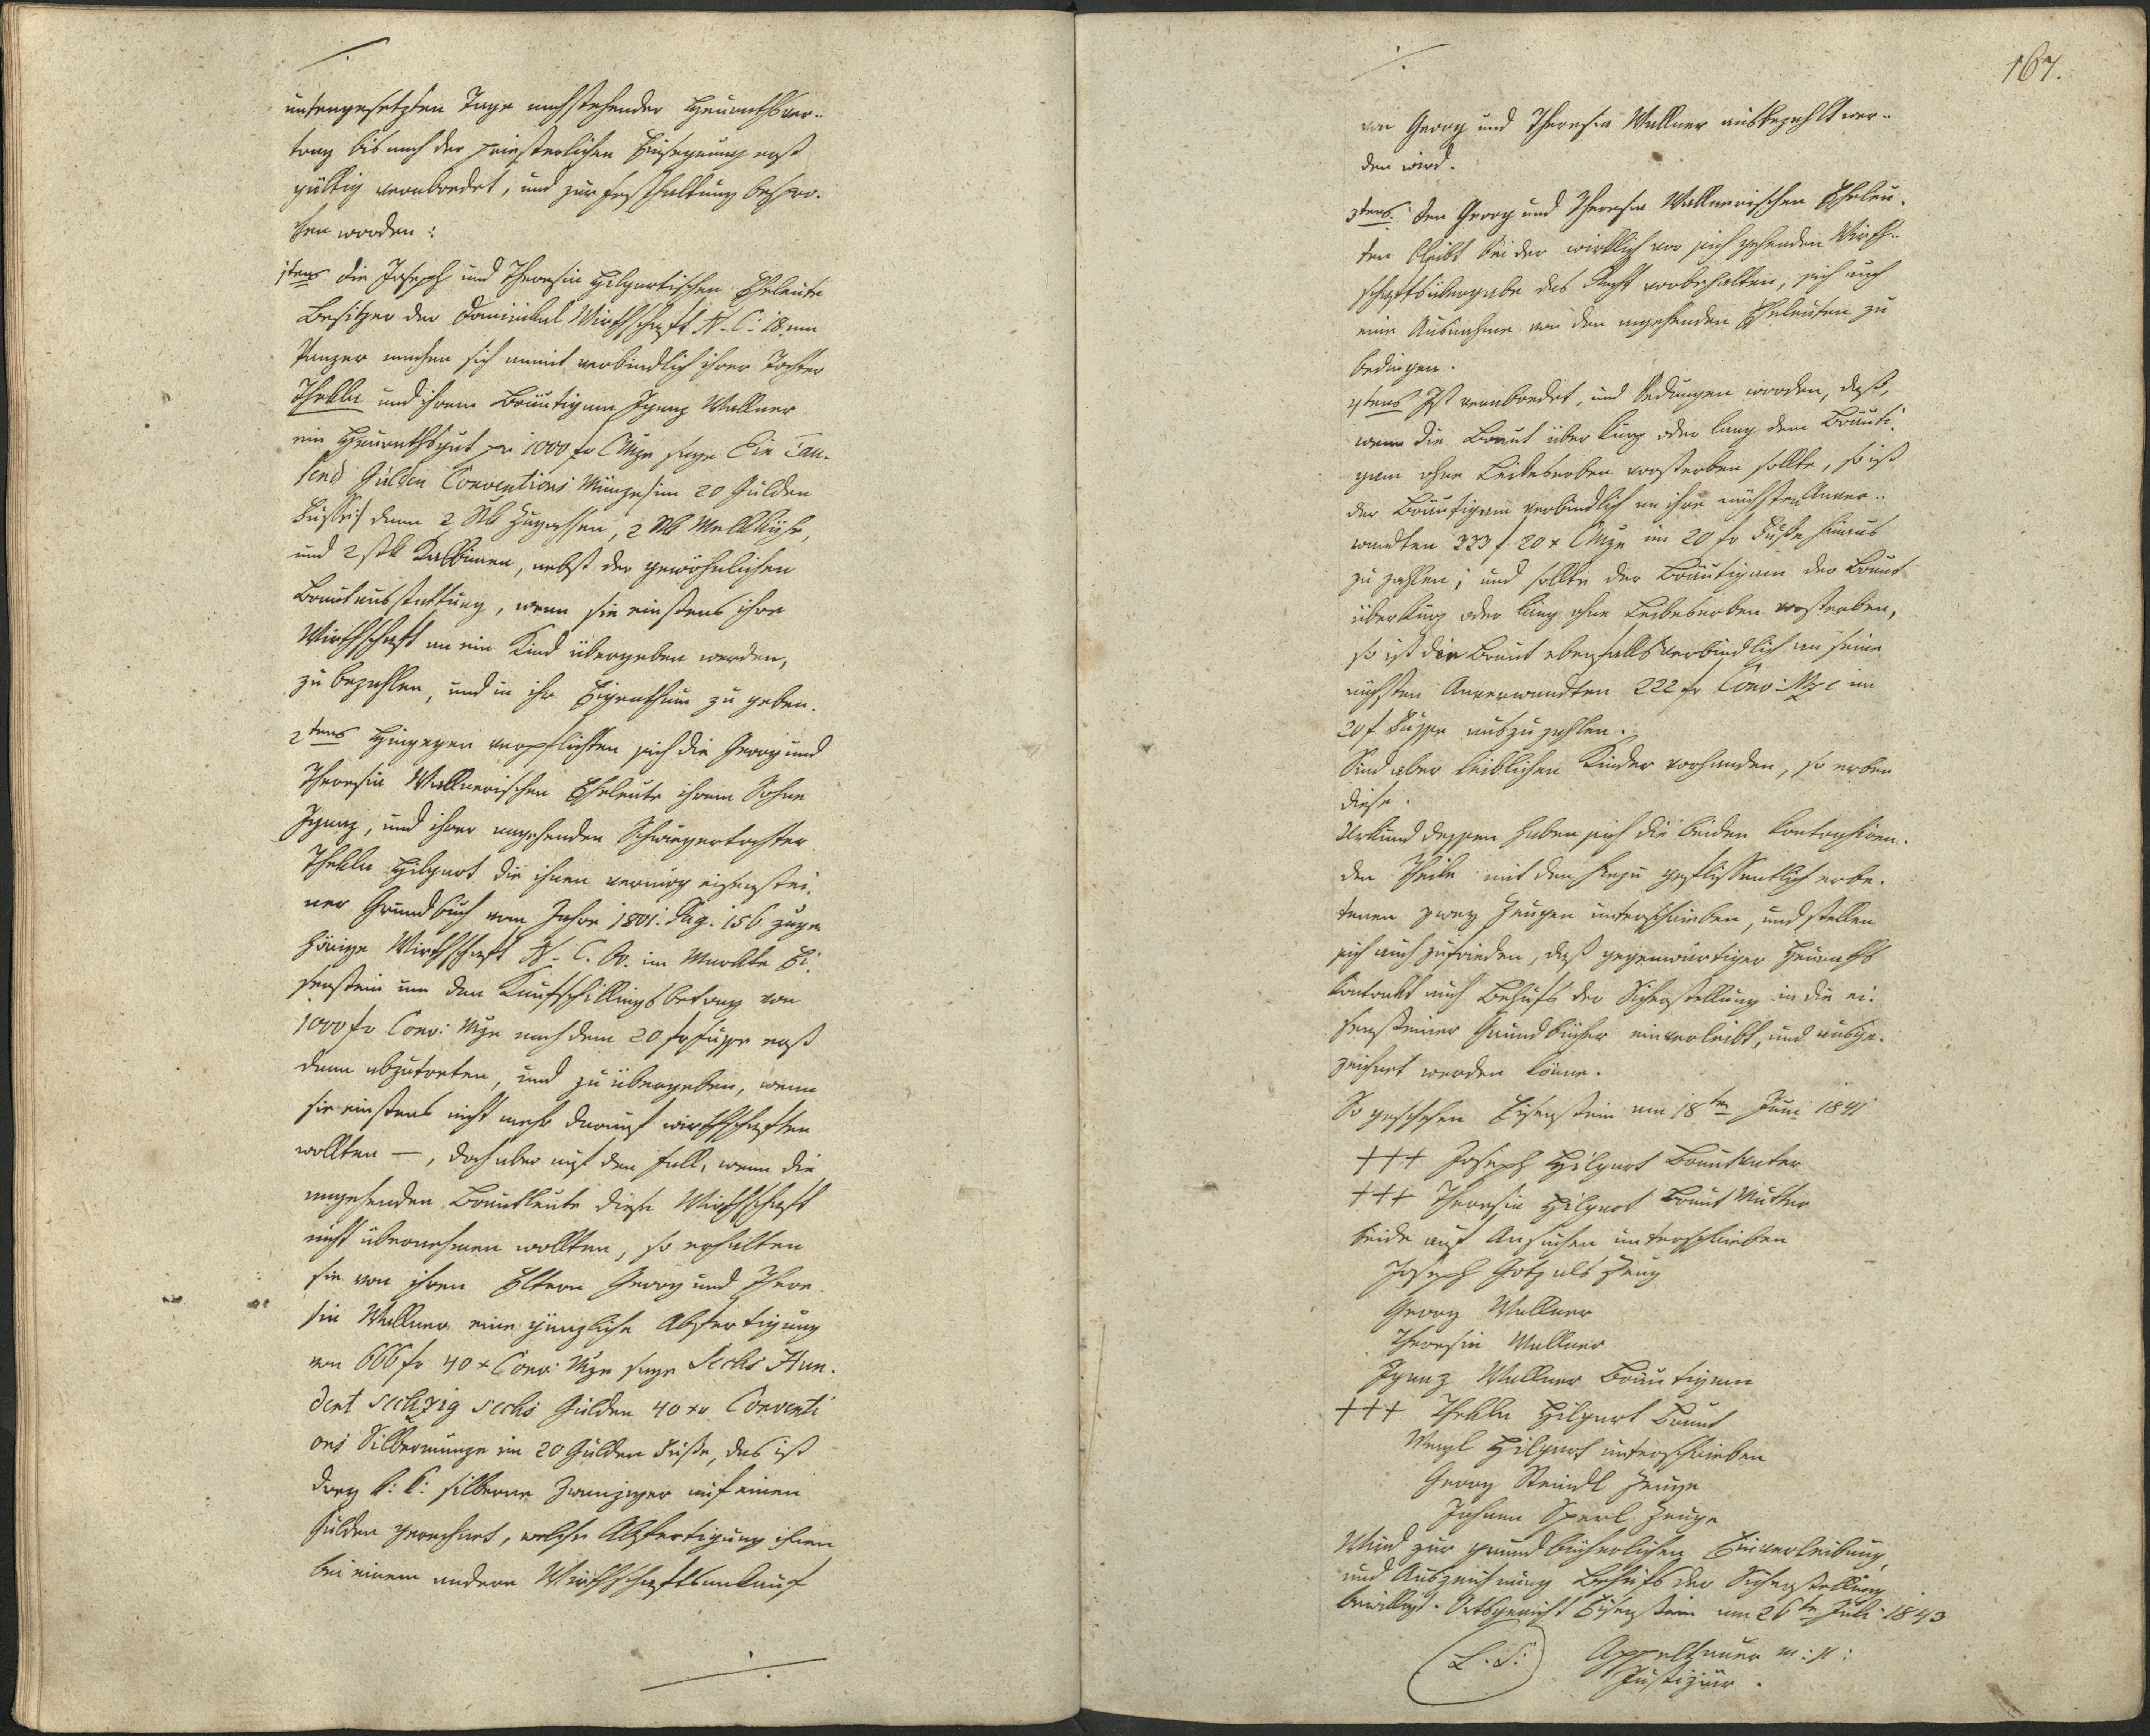 untengesetzten Tage nachstehender Heurathsver-
trag bis nach der priesterlichen Einsegnung erst
gültig verabredet, und zur Festhaltung beschlo-
ßen worden:
1tens Die Joseph und Theresia Hilgartischen Eheleute
Besitzer der Dominikal Wirthschaft N. C: 18 am
Panzer machen sich anmit verbindlich ihrer Tochter
Thekla und ihrem Bräutigam Ignaz Wallner
ein Heurathsgut pr 1000 fr CMze sage Ein Tau-
send Gulden Conventions Münze /im 20 Gulden
Fusse:/ dann 2 Stk Zugochsen, 2 Stk Melkkühe,
und 2 Stk Kalbinen, nebst der gewöhnlichen
Brautausstattung, wenn sie einstens ihre
Wirthschaft an ein Kind übergeben werden,
zu bezahlen, und in ihr Eigenthum zu geben.
2tens Hingegen verpflichten sich die Georg und
Theresia Wallnerischen Eheleute ihrem Sohne
Ignaz, und ihrer angehenden Schwiegertochter
Thekla Hilgart die ihnen vermög eisenstei-
ner Grundbuch vom Jahre 1801. Pag. 156 zuge-
hörige Wirthschaft N. C. im Markte Ei-
senstein um den Kaufschillingsbetrag von
1000 fr Conv: Mze nach dem 20 fr Fusse erst
dann abzutreten, und zu übergeben, wenn
sie einstens nicht mehr darauf wirthschaften
wollten —, doch aber auf den Fall, wenn die
angehenden Brautleute diese Wirthschaft
nicht übernehmen wollten, so erhalten
sie von ihren Eltern Georg und There-
sia Wallner eine gänzliche Abfertigung
von 666 fr 40 x Conv: Mze sage Sechs Hun-
dert sechzig sechs Gulden 40 xr Conventi
ons Silbermünze im 20 Gulden Fuße, das ist
drey k: k: silberne Zwanziger auf einen
Gulden gerechnet, welche Abfertigung ihnen
bei einem andern Wirthschaftsankauf
167.
von Georg und Theresia Wallner ausbezahlt wer-
den wird.
3tens. Den Georg und Theresia Wallnerischen Eheleu-
ten bleibt bei der wirklich vor sich gehenden Wirth-
schaftsübergabe das Recht vorbehalten, sich auch
eine Ausnahme von den angehenden Eheleuten zu
bedingen.
4tens Ist verabredet, und bedungen worden, daß,
wenn die Braut über kurz oder lang dem Bräuti-
gam ohne Leibeserben vorsterben sollte, so ist
der Bräutigam verbindlich an ihre nächsten Anver-
wandten 333 f 20 x CMze im 20 fr Fuße hinaus
zu zahlen; und sollte der Bräutigam der Braut
über kurz oder lang ohne Leibeserben vorsterben,
so ist die Braut ebenfalls verbindlich an seine
nächsten Anverwandten 222 fr Conv: Mze im
20 f Fusse auszuzahlen.
Sind aber leiblichen Kinder vorhanden, so erben
diese.
Urkund dessen haben sich die beiden kontrahiren-
den Theile mit den hiezu geflissentlich erbe-
tenen zwey Zeugen unterschrieben, und stellen
sich auch zufrieden, daß gegenwärtiger Heuraths
kontrakt auch Behufs der Sicherstellung in die ei-
sensteiner Grundbücher einverleibt, und ausge-
zeichnet werden könne.
So geschehen Eisenstein am 18ten Juni 1841
+++ Joseph Hilgart Brautvater
+++ Theresia Hilgart Braut Mutter
beide auf Ansuchen unterschrieben
Joseph Gotz als Zeug
Georg Wallner
Theresia Wallner
Ignaz Wallner Bräutigam
+++ Thekla Hilgart Braut
Hilgart unterschrieben
Georg Steindl Zeuge
Johann Sperl Zeuge
Wird zur grundbücherlichen Einverleibung,
und Auszeichnung Behufs der Sicherstellung
bewilligt. Ortsgericht Eisenstein am 26ten Juli 1843
L. S.
Appeltauer m: p:
Justiziär.